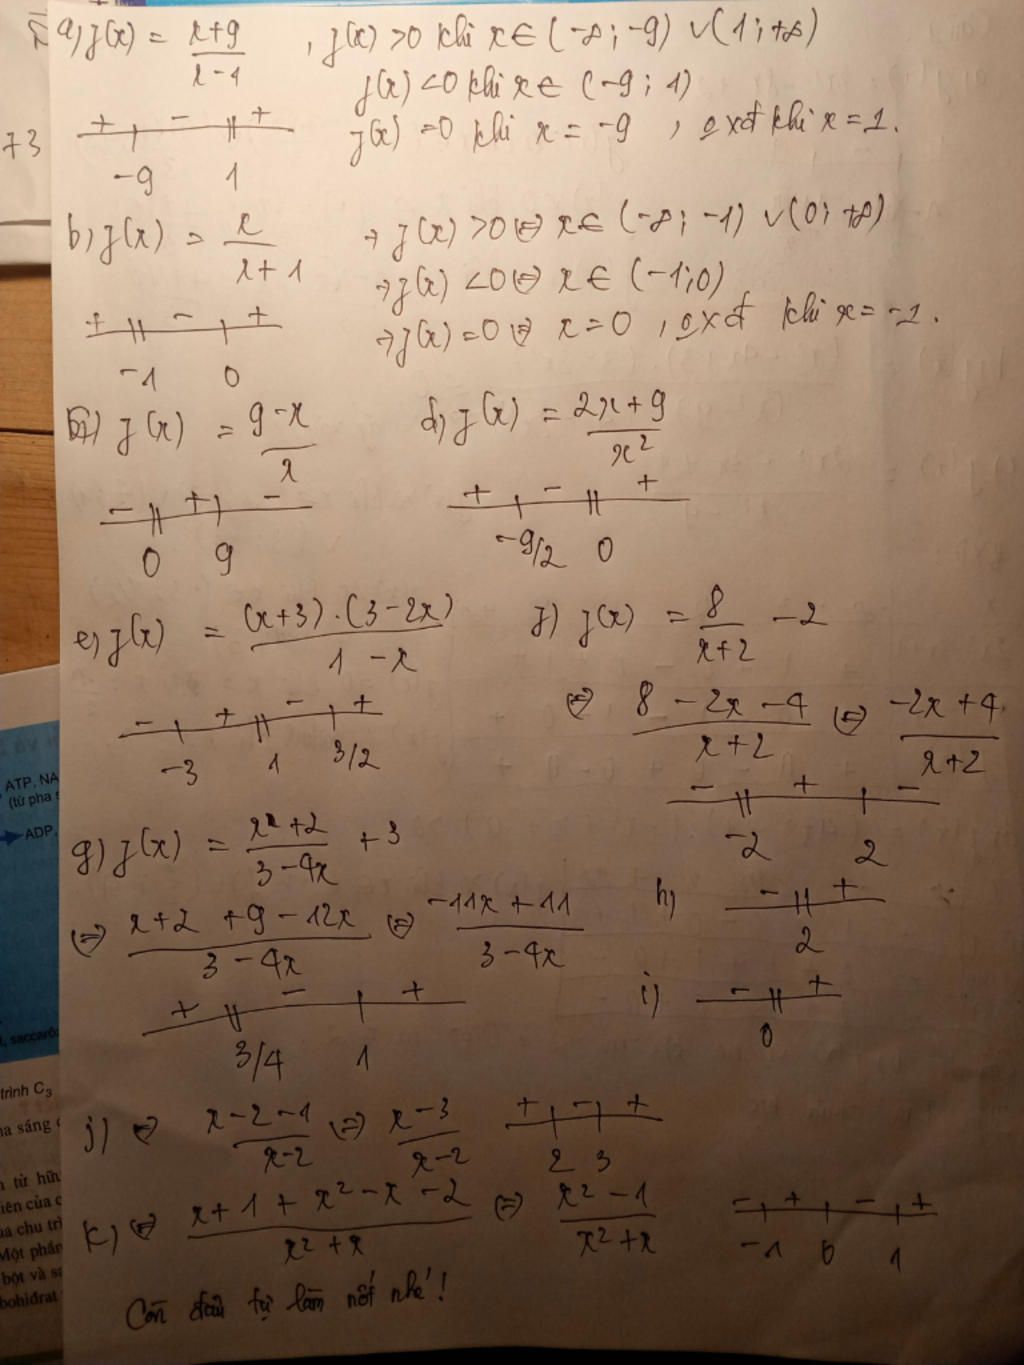 a) f(x) = (x+9)/(x-1) , f(x) >0 khi x ∈ (-∞; -9) ∪ (1; +∞)
f(x) <0 khi x ∈ (-9; 1)
+ - +
f(x) =0 khi x = -9 , 0 xđ khi x = 1.
73
-9 1
b) f(x) = x/(x+1) → f(x) >0 ⇔ x ∈ (-∞; -1) ∪ (0; +∞)
→ f(x) <0 ⇔ x ∈ (-1; 0)
+ - +
→ f(x) =0 ⇔ x = 0 , 0 xđ khi x = -1.
-1 0
f(x) = (9-x)/x d) f(x) = (2x+9)/x²
- + - + - +
0 9 -9/2 0
e) f(x) = (x+3).(3-2x)/(1-x) f) f(x) = 8/(x+2) -2
⇔ (8-2x-4)/(x+2) ⇔ (-2x+4)/(x+2)
- + - +
-3 1 3/2
- + -
-2 2
g) f(x) = (x+2)/(3-4x) +3
⇔ (x+2+9-12x)/(3-4x) ⇔ (-11x+11)/(3-4x)
h) - +
2
+ - +
3/4 1
i) - +
0
j) ⇔ (x-2-1)/(x-2) ⇔ (x-3)/(x-2) + - +
2 3
k) ⇔ (x+1+x²-x-2)/(x²+x) ⇔ (x²-1)/(x²+x) - + - +
-1 0 1
Còn đâu tự làm nốt nhé!
ATP, NA
(từ pha s
ADP,
saccarô
trình C3
sáng
từ hữu
iên của c
ua chu trì
Một phần
bột và sa
bohiđrat